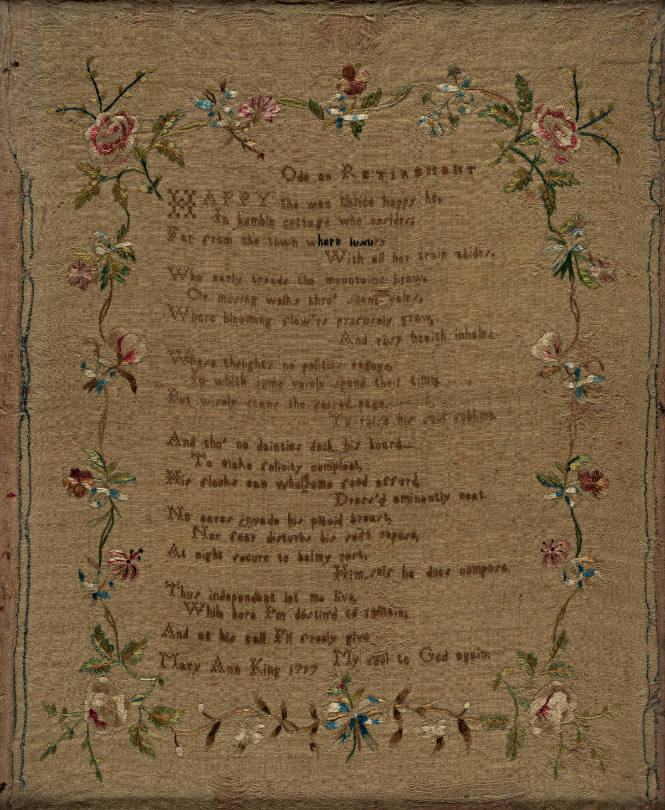 Ode on RETIREMENT
HAPPY the man thrice happy he,
In humble cottage who resides,
Far from the town where luxury
With all her train abides,
Who early treads the mountains brow,
Or musing walks thro' silent vales,
Where blooming flow'rs profusely grow,
And rosy health inhales
Whose thoughts no politics engage,
In which some vainly spend their time
But wisely scans the sacred page,
To raise his soul sublime.
And tho' no dainties deck his board
To make felicity compleat,
His flocks can wholsome food afford
Dress'd eminently neat.
No cares invade his placid breast,
Nor fear disturbs his soft repose,
At night secure to balmy rest,
Him self he does compose.
Thus independent let me live,
While here I'm destin'd to remain,
And at his call I'll freely give
My soul to God again
Mary Ann King 1797